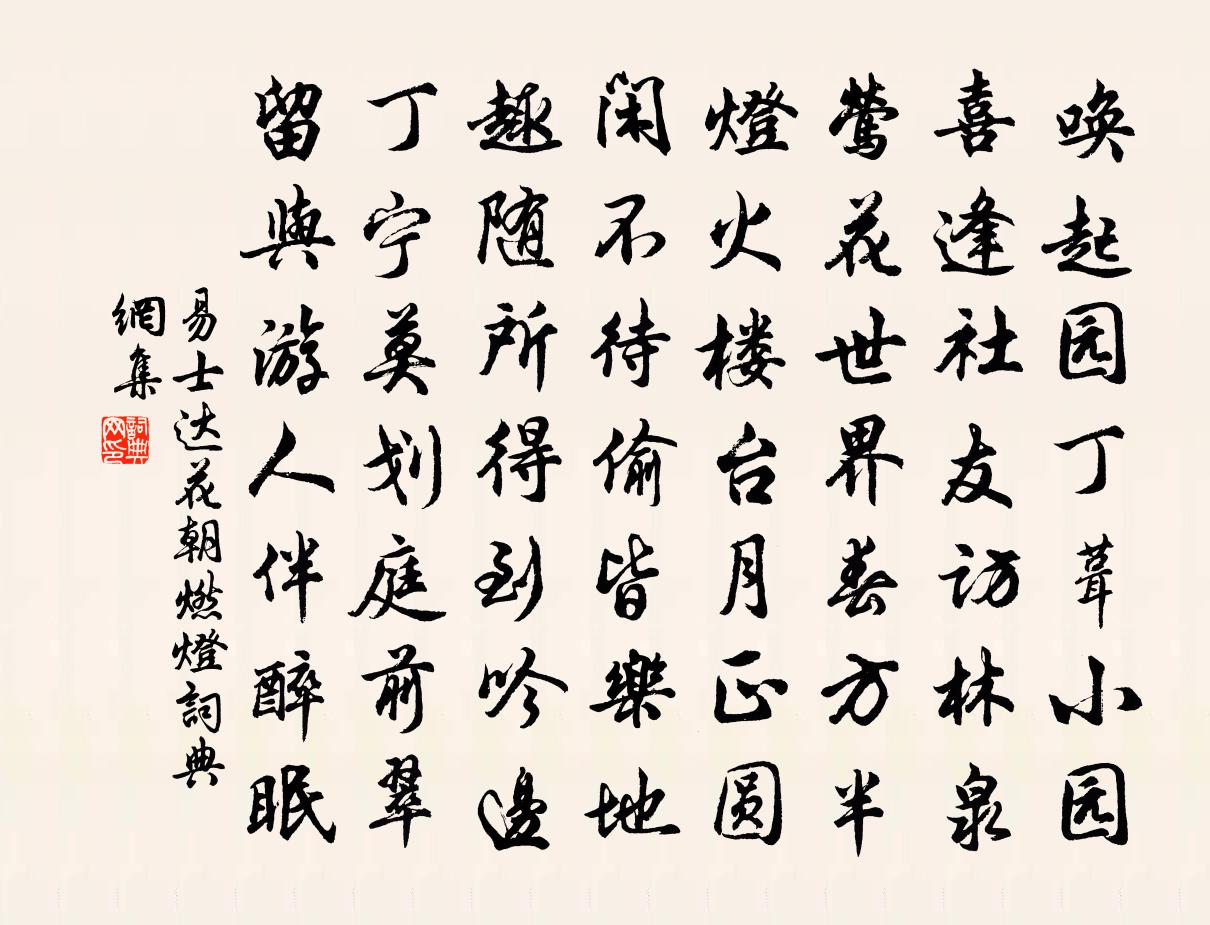 唤起园丁葺小园
喜逢社友访林泉
莺花世界春方半
燈火楼台月正圆
闲不待偷皆樂地
趣随所得到吟邊
丁宁莫划庭前翠
留與游人伴醉眠
易士达花朝燃燈詞典
網集
詞典
网印